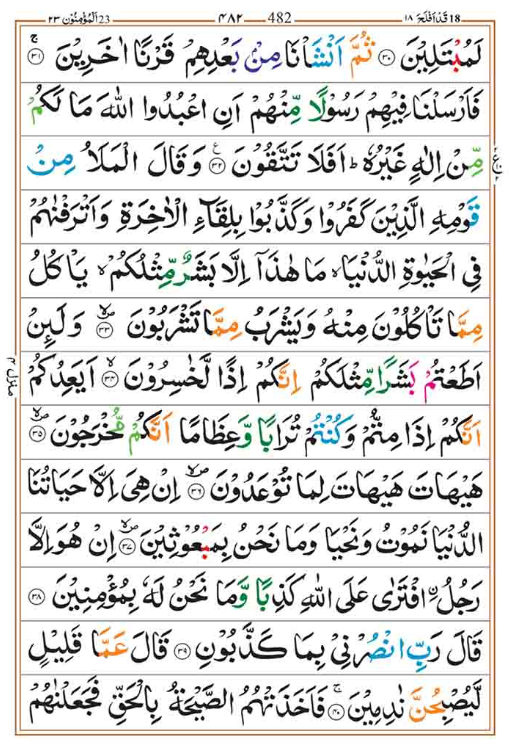 18 قَدْاَفْلَحَ ١٨ — 482 — ٤٨٢ — 23 اَلْمُؤْمِنُوْن ٢٣
لَمُبْتَلِيْنَ ﴿٣٠﴾ ثُمَّ اَنْشَاْنَا مِنْۢ بَعْدِهِمْ قَرْنًا اٰخَرِيْنَ ﴿٣١﴾ۚ
فَاَرْسَلْنَا فِيْهِمْ رَسُوْلًا مِّنْهُمْ اَنِ اعْبُدُوا اللّٰهَ مَا لَكُمْ
مِّنْ اِلٰهٍ غَيْرُهٗ ؕ اَفَلَا تَتَّقُوْنَ ﴿٣٢﴾ۧ وَقَالَ الْمَلَاُ مِنْ
قَوْمِهِ الَّذِيْنَ كَفَرُوْا وَكَذَّبُوْا بِلِقَآءِ الْاٰخِرَةِ وَاَتْرَفْنٰهُمْ
فِي الْحَيٰوةِ الدُّنْيَا ۙ مَا هٰذَاۤ اِلَّا بَشَرٌ مِّثْلُكُمْ ۙ يَاْكُلُ
مِمَّا تَاْكُلُوْنَ مِنْهُ وَيَشْرَبُ مِمَّا تَشْرَبُوْنَ ﴿٣٣﴾ۙ وَلَىِٕنْ
اَطَعْتُمْ بَشَرًا مِّثْلَكُمْ اِنَّكُمْ اِذًا لَّخٰسِرُوْنَ ﴿٣٤﴾ۙ اَيَعِدُكُمْ
اَنَّكُمْ اِذَا مِتُّمْ وَكُنْتُمْ تُرَابًا وَّعِظَامًا اَنَّكُمْ مُّخْرَجُوْنَ ﴿٣٥﴾
هَيْهَاتَ هَيْهَاتَ لِمَا تُوْعَدُوْنَ ﴿٣٦﴾ اِنْ هِيَ اِلَّا حَيَاتُنَا
الدُّنْيَا نَمُوْتُ وَنَحْيَا وَمَا نَحْنُ بِمَبْعُوْثِيْنَ ﴿٣٧﴾ اِنْ هُوَ اِلَّا
رَجُلُ ۨ افْتَرٰى عَلَى اللّٰهِ كَذِبًا وَّمَا نَحْنُ لَهٗ بِمُؤْمِنِيْنَ ﴿٣٨﴾
قَالَ رَبِّ انْصُرْنِيْ بِمَا كَذَّبُوْنِ ﴿٣٩﴾ قَالَ عَمَّا قَلِيْلٍ
لَّيُصْبِحُنَّ نٰدِمِيْنَ ﴿٤٠﴾ۚ فَاَخَذَتْهُمُ الصَّيْحَةُ بِالْحَقِّ فَجَعَلْنٰهُمْ
منزل ٤